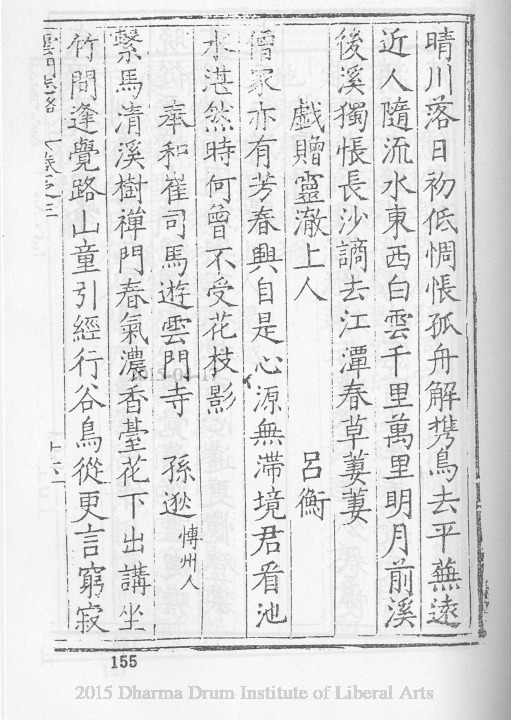 晴川落日初低惆悵孤舟解攜鳥去平蕪遠
近人隨流水東西白雲千里萬里明月前溪
後溪獨悵長沙謫去江潭春草萋萋
戲贈靈澈上人　呂衡
僧家亦有芳春興自是心源無滯境君看池
水湛然時何曾不受花枝影
奉和崔司馬遊雲門寺　孫逖 博州人
繫馬清溪樹禪門春氣濃香臺花下出講坐
竹間逢覺路山童引經行谷鳥從更言窮寂
雲門志略 卷之三
155
2015 Dharma Drum Institute of Liberal Arts